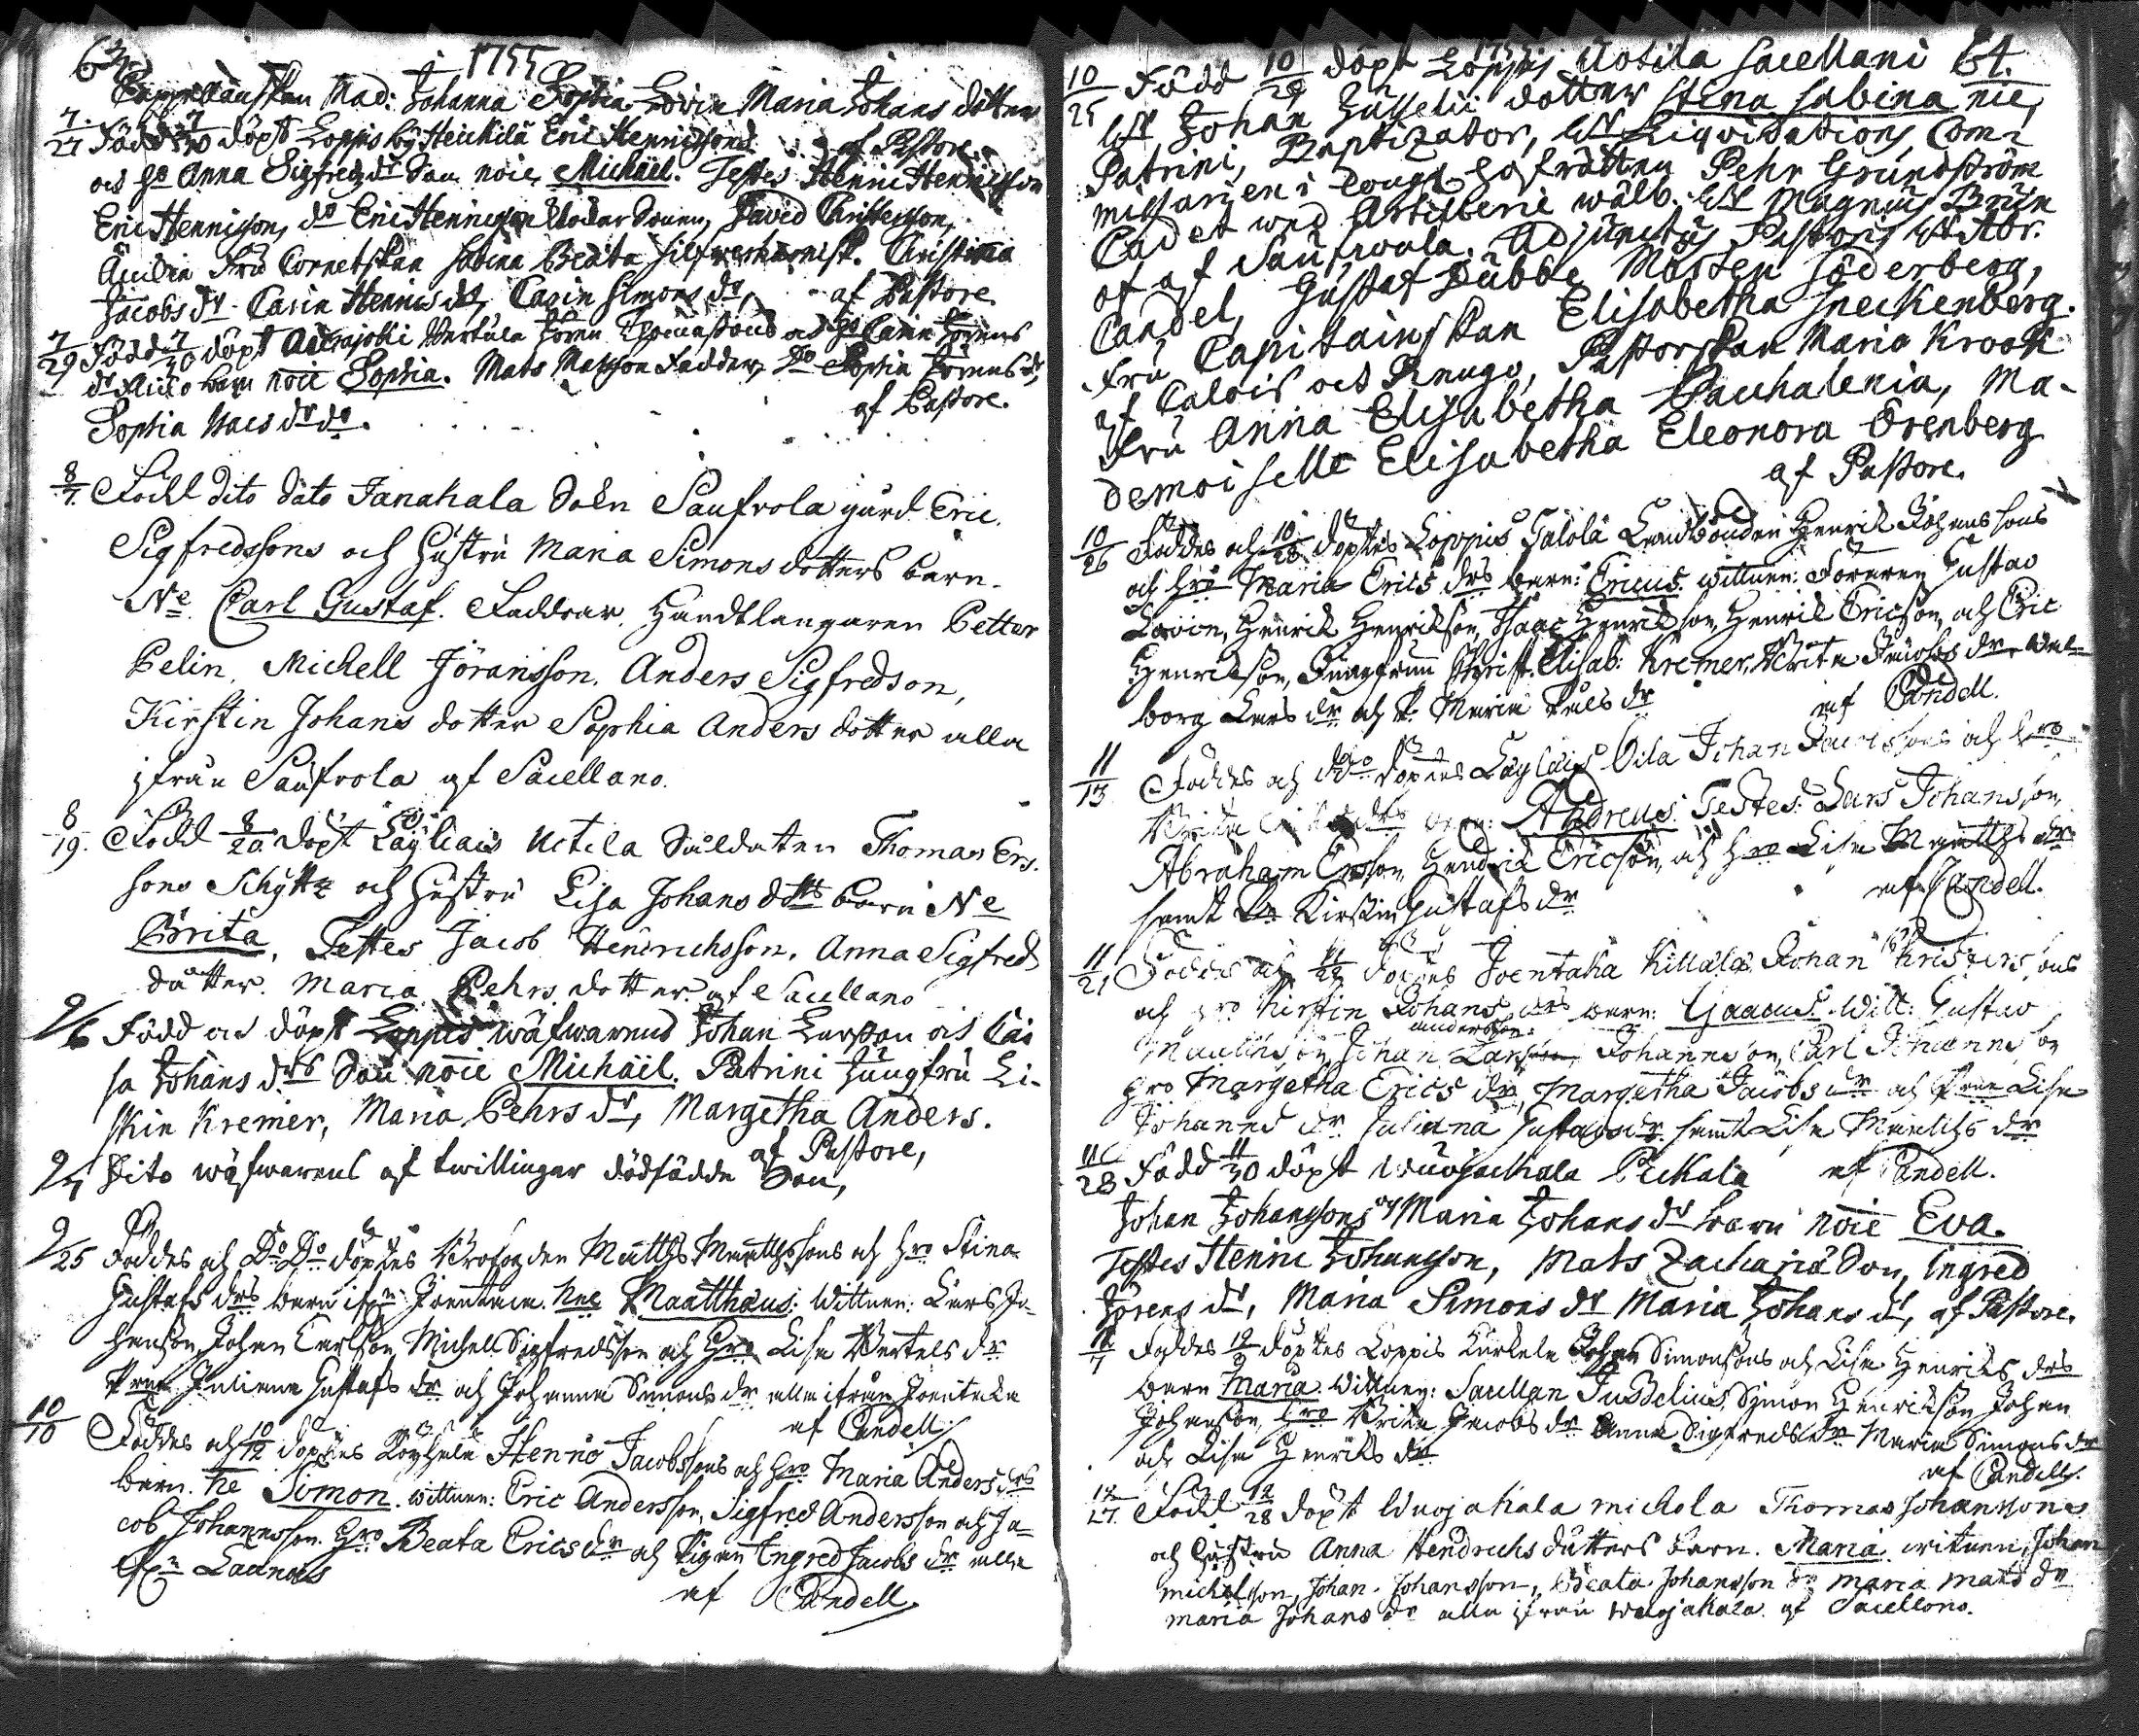 63. 1755
Capellanskan Mad: Johanna Sophia Lovin Maria Johans dotter
7/27 Född 7/30 döpt Loppis by Heickilä Eric Hennigsons af Pastore.
och ho Anna Sigfreds dr Son noie Michäel. Testes Henric Henricsson
Eric Hennigson, do Eric Hennigson David Christerson,
Fru Cornetskan Sabina Beata Silfverharnisk. Christina
Jacobs dr Carin Hennis dr, Carin Simons dr, af Pastore.
7/29 Född 7/30 döpt Wertula Jören Thomassons och ho Carin Jörens
dr barn noie Sophia. Mats Matsson Fadder, Do Sophia Jörens dr,
Sophia dr do. af Pastore.
8/7. Född dito dato Janakala Sokn Saufvola gård Eric
Sigfredssons och Hustru Maria Simons dotters barn.
Ne Carl Gustaf. Faddrar, Handtlangaren Petter
Pelin, Michell Jöransson, Anders Sigfredson,
Kirstin Johans dotter Sophia Anders dotter alla
ifrån Saufvola af Sacellano.
8/19. Född 8/20 döpt Läyliäis Uotila Soldaten Thomas Ers.
sons Schytts och Hustru Lisa Johans dtts barn Ne
Brita, Testes Jacob Hendrichsson, Anna Sigfreds
dåtter. Maria Pehrs dotter af Sacellano
9/6 Född och döpt Loppis wäfwarens Johan Larsson och Cai
sa Johans drs Son noie Michäel. Patrini Jungfru Li-
skin Kremer, Maria Pehrs dr, Margetha Anders.
af Pastore,
9/7 Dito wäfwarens af twillingar dödfödde Son,
9/25 Föddes och Do Do döptes Matths Matthssons och Hro Stina
Gustafs drs barn Joentaca. Nne Maatthæus: Wittnen: Lars Jo-
hansson, Johan Carlson, Michell Sigfredsson och Hro Lisa Bertels dr
Juliana Gustafs dr och Johanna Simons dr alla ifrån Joentaka
af Candell.
10/10 Föddes och 10/12 döptes Henric Jacobssons och Hro Maria Anders drs
barn. Ne Simon. Wittnen: Eric Andersson, Sigfred Andersson och Ja-
cob Johansson. Hro Beata Erics dr och Pigan Ingred Jacobs dr alla
af Candell.
10/25 Född 10/29 döpt Loppis Uotila Sacellani Et.
Hr Johan Jusselii dotter Stina Sabina nie,
Patrini, Baptizator, Hr Liqvidations Com-
missarien i Kongl. Hofrätten Pehr Grundström
Cadet wid Artilleriet wälb. Hr Magnus Bruun
af Saufwola. Adjunctus Pastoris Hr Abr.
Candel, Gustaf Dubbe Mosten Söderberg,
Fru Capitainskan Elisabetha Sneckenberg.
af Calois och Renugo, Pastorskan Maria Krook
Fru Anna Elisabetha Pachalenia, Ma-
demoiselle Elisabetha Eleonora Örenberg
af Pastore.
10/26 Föddes och 10/28 döptes Loppis Talola Landbonden Henrich Johanssons
och hro Maria Erics drs barn: Ericus. wittnen: Gustav
Lovin, Henrich Henrichson, Isaac Henrichson, Henrich Ericson, och Eric
Henrichson, Jungfrun Christ. Elisab: Kremer, Brita Jacobs dr, Wal-
borg Lars dr och Maria Påls dr af Candell.
11/13 Föddes och ddo döptes Läyliäis Oila Johan Jacobssons och hro
Brita drs barn: Andreas. Testes. Lars Johansson,
Abraham Ersson, Hendrich Ericson, och Hro Lisa Matths dr
samt Kirstin Gustafs dr af Candell.
11/21 Föddes och 11/23 döptes Joentaka Killala Johan Kristerssons
och hro Kirstin Johans drs barn: Isaacus. Witt: Gustav
Mattson, Johan Andersson: Johansson, Carl Johansson
Hro Margetha Erics dr, Margetha Jacobs dr och Lisa
Johans dr Juliana Gustavs dr samt Lisa Matths dr
af Candell.
11/28 Född 11/30 döpt Wuojackala Peckala
Johan Johanssons och Maria Johans dr barn noie Eva.
Testes Henric Johansson, Mats Zachariä Son, Ingred
Jörens dr, Maria Simons dr Maria Johans dr, af Pastore.
12/7 Föddes 12/9 döptes Loppis Johan Simonsons och Lisa Henrichs drs
barn Maria. Wittnen: Sacellan Jusselius, Simon Henrichson Johan
Johansson, Hro Brita Jacobs dr Anna Sigfreds dr Maria Simons dr
och Lisa Henrichs dr af Candell.
12/27. Född 12/28 döpt Wuojakala Michola Thomas Johanssons
och Hustru Anna Hendrichs dåtters barn. Maria. witnen, Johan
Michelson, Johan Johansson, Beata Johansson dr Maria Mats dr
Maria Johans dr alla ifrån Wuojakala af Sacellono.